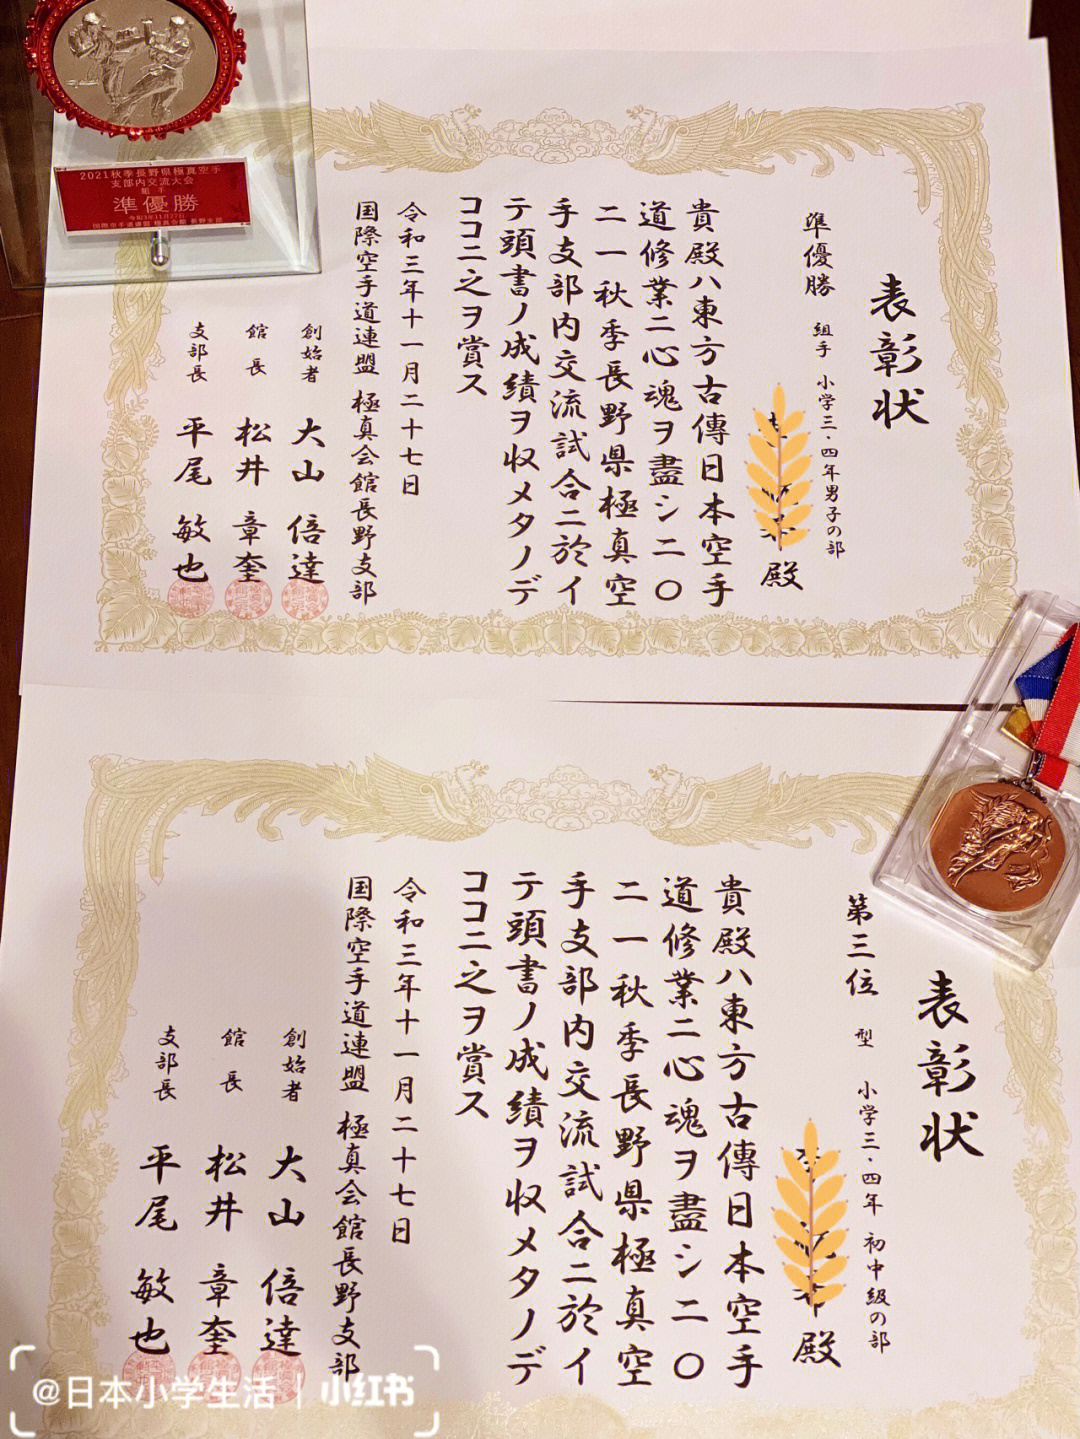 2021秋季長野県極真空手
支部内交流大会
組手
準優勝
令和3年11月27日
国際空手道連盟 極真会館 長野支部
表彰状
準優勝 組手 小学三・四年男子の部
殿
貴殿ハ東方古傳日本空手
道修業ニ心魂ヲ盡シ二〇
二一秋季長野県極真空
手支部内交流試合ニ於イ
テ頭書ノ成績ヲ収メタノデ
ココニ之ヲ賞ス
令和三年十一月二十七日
国際空手道連盟 極真会館長野支部
創始者 大山 倍達
館長 松井 章奎
支部長 平尾 敏也
表彰状
第三位 型 小学三・四年 初中級の部
殿
貴殿ハ東方古傳日本空手
道修業ニ心魂ヲ盡シ二〇
二一秋季長野県極真空
手支部内交流試合ニ於イ
テ頭書ノ成績ヲ収メタノデ
ココニ之ヲ賞ス
令和三年十一月二十七日
国際空手道連盟 極真会館長野支部
創始者 大山 倍達
館長 松井 章奎
支部長 平尾 敏也
@日本小学生活 | 小红书